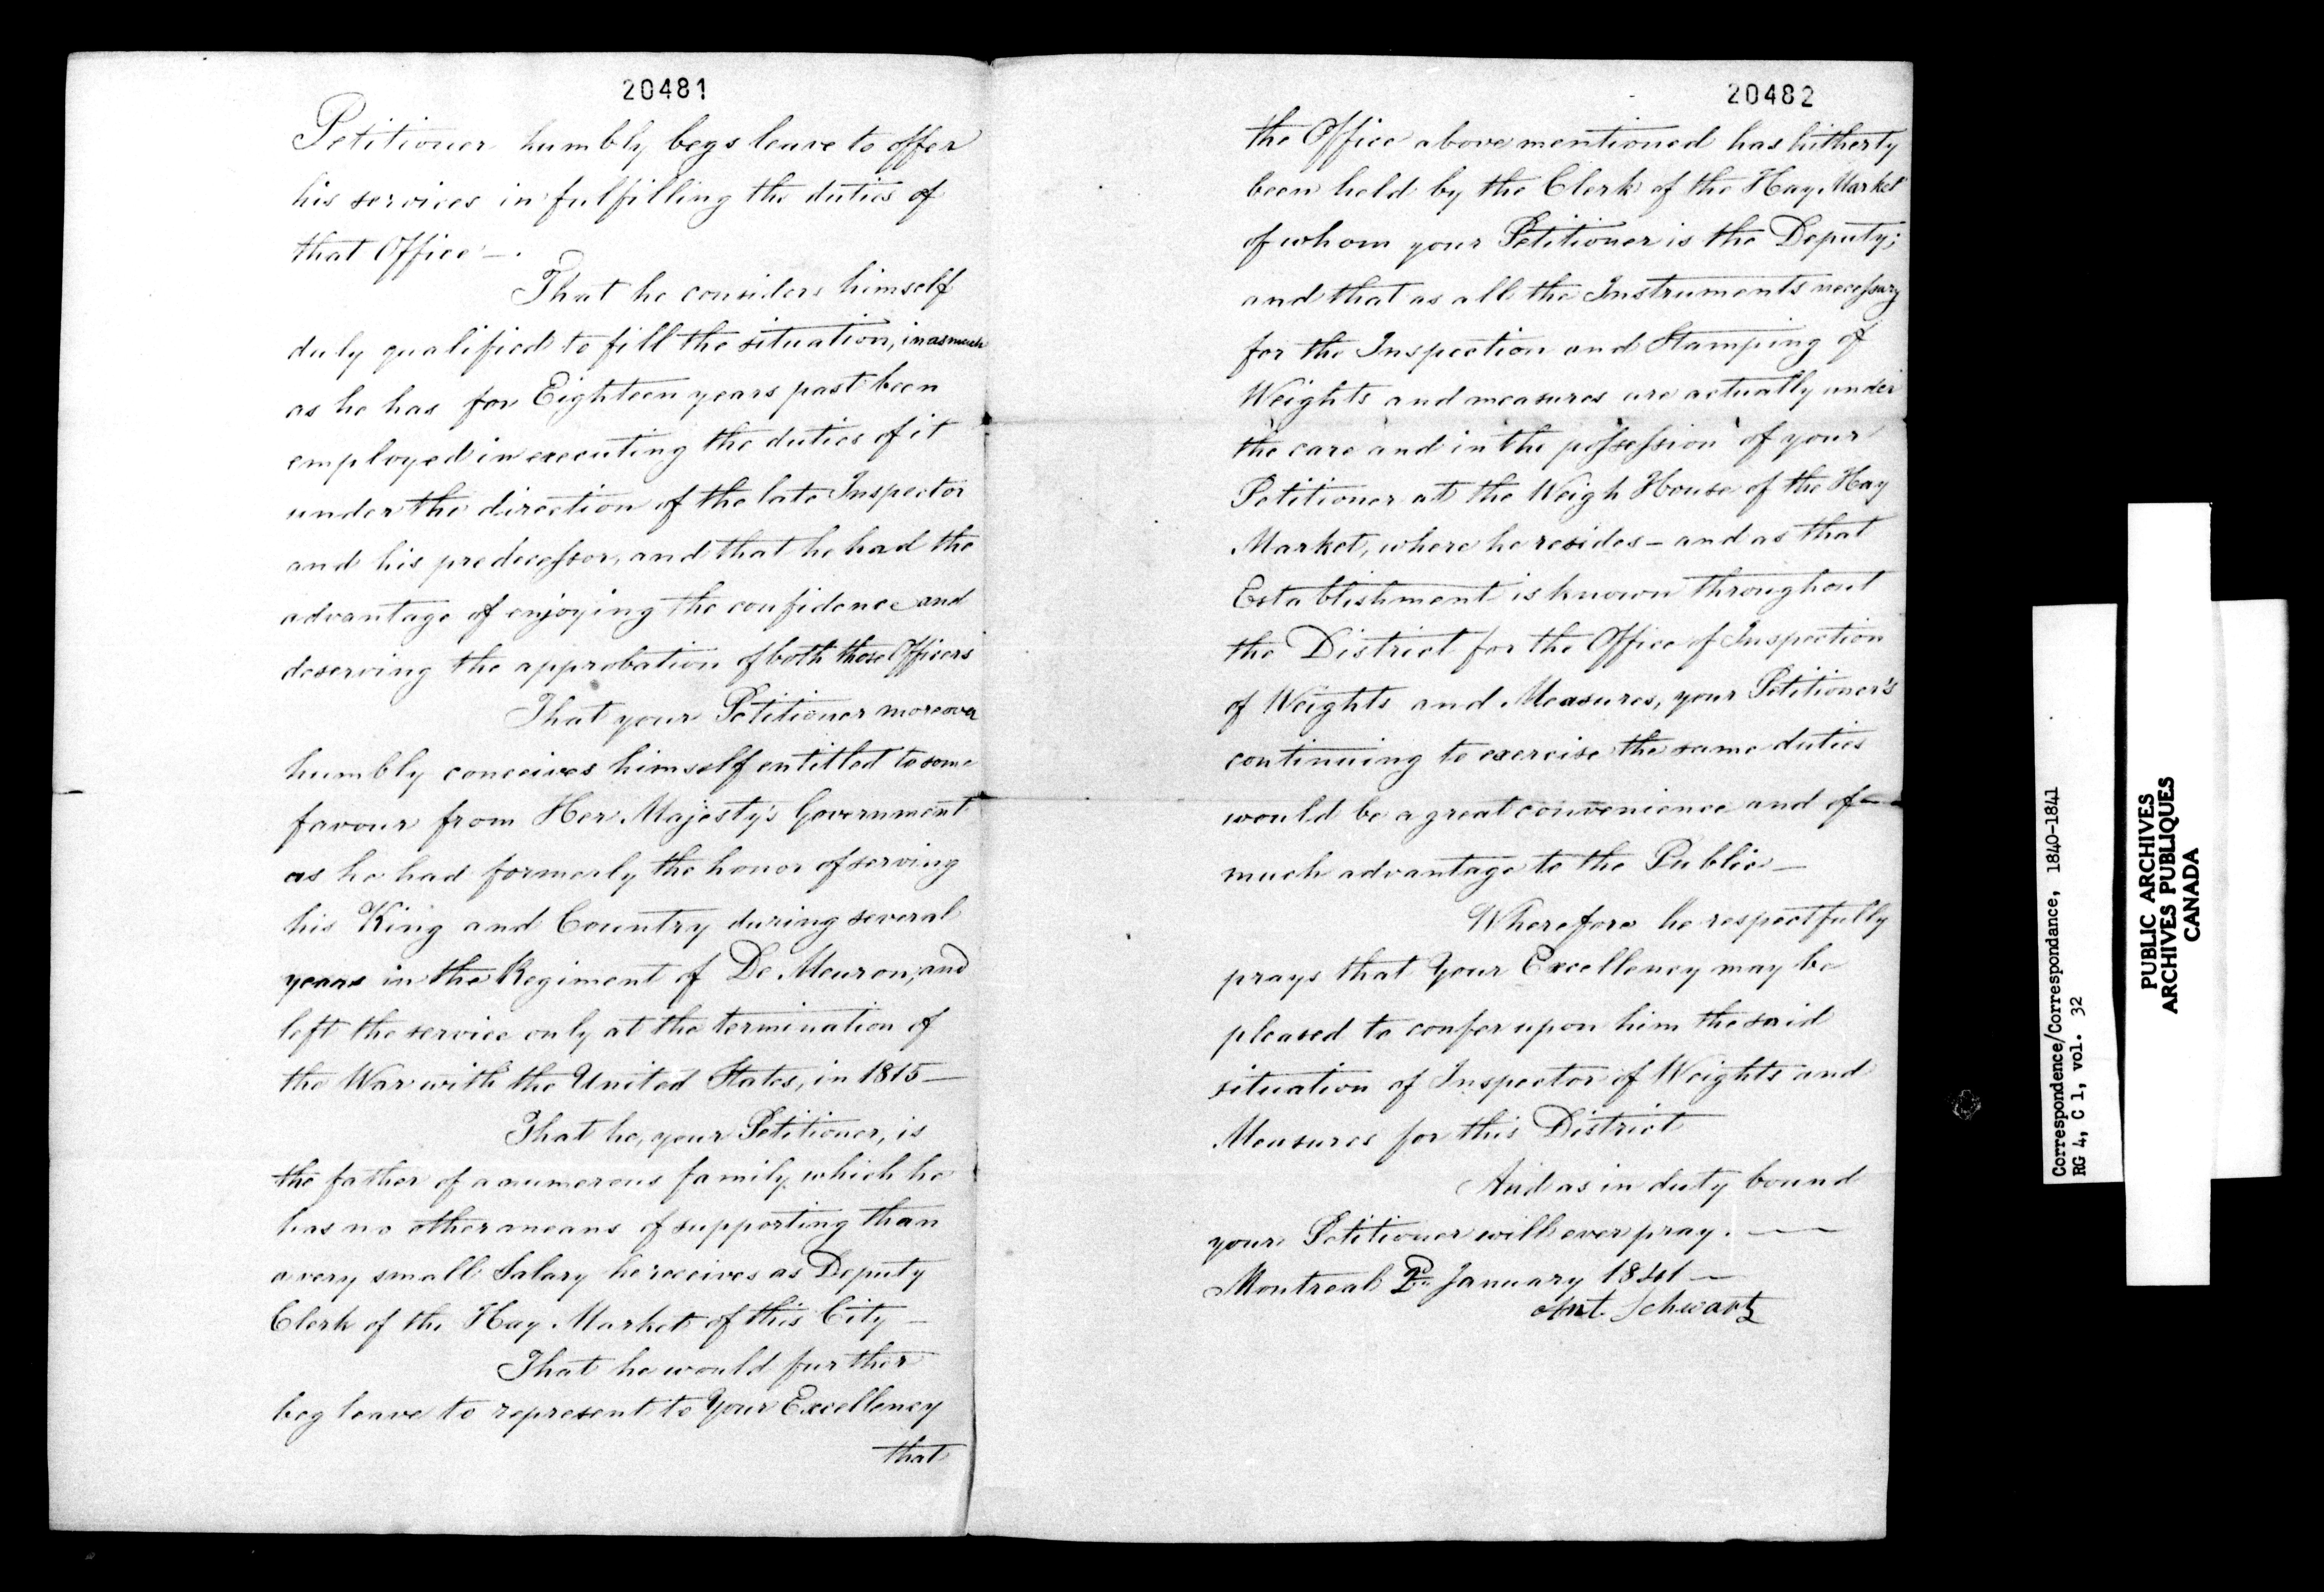 20481
Petitioner humbly begs leave to offer
his services in fulfilling the duties of
that Office —.
That he considers himself
duly qualified to fill the situation, inasmuch
as he has for Eighteen years past been
employed in executing the duties of it
under the direction of the late Inspector
and his predecessor, and that he had the
advantage of enjoying the confidence and
deserving the approbation of both those Officers
That your Petitioner moreover
humbly conceives himself entitled to some
favour from Her Majesty's Government
as he had formerly the honor of serving
his King and Country during several
years in the Regiment of De Meuron, and
left the service only at the termination of
the War with the United States, in 1815 —
That he, your Petitioner, is
the father of a numerous family which he
has no other means of supporting than
a very small Salary he receives as Deputy
Clerk of the Hay Market of this City —
That he would further
beg leave to represent to Your Excellency
that
20482
the Office above mentioned has hitherty
been held by the Clerk of the Hay Market
of whom your Petitioner is the Deputy;
and that as all the Instruments necessary
for the Inspection and Stamping of
Weights and measures are actually under
the care and in the possession of your
Petitioner at the Weigh House of the Hay
Market, where he resides — and as that
Establishment is known throughout
the District for the Office of Inspection
of Weights and Measures, your Petitioner's
continuing to exercise the same duties
would be a great convenience and of
much advantage to the Public —
Wherefore he respectfully
prays that Your Excellency may be
pleased to confer upon him the said
situation of Inspector of Weights and
Measures for this District
And as in duty bound
your Petitioner will ever pray. —
Montreal January 1841 —
Ant. Schwartz
Correspondence/Correspondance, 1840-1841
RG 4, C 1, vol. 32
PUBLIC ARCHIVES
ARCHIVES PUBLIQUES
CANADA